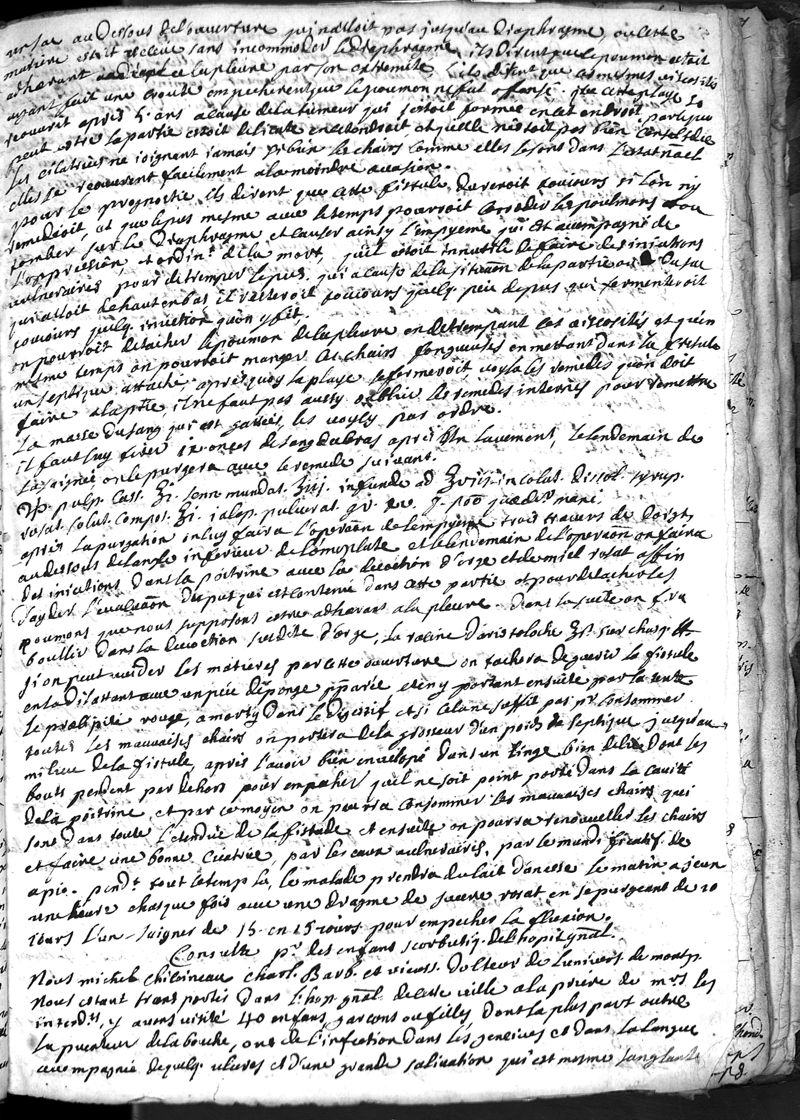 versac au dessous de l'ouverture qui n'alloit pas jusqu'au diaphragme, ou cette
matiere estoit retenue sans incommoder le diaphragme, ils dirent que le poumon estoit
adherant a la pleure par son extremité, ils disent que ces mesmes viscosités
ayant fait une croute empecherent que le poumon ne fut offensé. que cette playe se
rouvrit apres 5. ans a cause de la tumeur qui s'estoit formée en cet endroit, parce que
peut estre la partie estoit delicate en cet endroit et qu'elle n'estoit pas bien consolidée
les cicatrices ne joignent jamais si bien les chairs comme elles le sont dans l'estat nael
elles se rouvrent facilement a la moindre occasion.
pour le prognostic ils dirent que cette fistule dureroit toujours si l'on n'y
remedioit, et que le pus mesme avec le temps pourroit corroder les poulmons et ou
tomber sur le diaphragme et causer ainsy l'empyeme qui est accompagné de
l'oppression et ordint. de la mort, qu'il estoit innutile de faire des iniections
vulneraires pour detremper le pus, qui a cause de la situaon de la partie ou du sac
qui alloit de haut en bas il resteroit toujours quelq. peu de pus qui fermenteroit
toujours quelq. iniection qu'on y fit.
on pourroit detacher le poumon de la pleure en detrempant ces viscosités et qu'en
mesme temps on pourroit manger les chairs fongueuses en mettant dans la fistule
un septique attaché, apres quoy la playe se fermeroit voyla les remedes qu'on doit
faire a la ptie, il ne faut pas aussy oublier les remedes internes pour remettre
la masse du sang qui est gastée, les voyly par ordre.
il faut luy tirer ix onces de sang du bras apres un lavement, le lendemain de
la saignée on le purgera avec le remede suivant.
℞ pulp. cass. ʒi. senn. mundat. ʒiij. infunde ad ʒvij. in colat. dissol. syrup.
rosat. solut. compos. ʒi. jalap. pulverat. gr. xv. f. potio mane
apres la purgation on luy faira l'operaon de l'empyeme trois travers de doigts
au dessous de l'angle inferieur de l'omoplate et le lendemain de l'operaon on faira
des iniections dans la poitrine avec la decoction d'orge et de miel rosat affin
d'ayder l'evacuaon du pus qui est contenue dans cette partie et pour detacher les
poumons que nous supposons estre adherans a la pleure. dans la suite on fera
bouillir dans la decoction susdite d'orge, la racine d'aristoloche ʒß. sur chasq.
si on peut vuider les matieres par cette ouverture on tachera de guerir la fistule
en la dilatant avec un peu d'eponge pparée et en y portant ensuite par la tente
le precipité rouge, amorty dans le digestif et si cela ne suffit pas pr. consommer
toutes les mauvaises chairs on portera de la grosseur d'un pois de septique jusqu'au
milieu de la fistule, apres l'avoir bien envelopé dans un linge bien delié dont les
bouts pendent par dehors pour empecher qu'il ne soit point porté dans la cavité
de la poitrine, et par ce moyen on pourra consommer les mauvaises chairs qui
sont dans toute l'etendue de la fistule et ensuite on pourra renouveller les chairs
et faire une bonne cicatrice par les eaux vulneraires, par le mundificatif de
apio. pendt. tout ce temps la, le malade prendra du lait d'anesse le matin a jeun
une heure chasque fois avec une dragme de sucre rosat en se purgeant de 10
jours l'un. saigner de 15. en 15 iours pour empecher la fluxion.
Consulte pr. des enfans scorbutiq. de l'hopit. gnal.
Nous michel chicoineau charl. Barb. et vieuss. docteur de l'univers. de montp.
nous estant transportés dans l'hop. gnal. de cette ville a la priere de mrs les
intendts, y avons visité 40 enfans garçons ou filles dont la plus part outre
la puenteur de la bouche, ont de l'infection dans les gencives et dans la langue
accompagnée de quelq. ulceres et d'une grande salivation qui est mesme sanglante